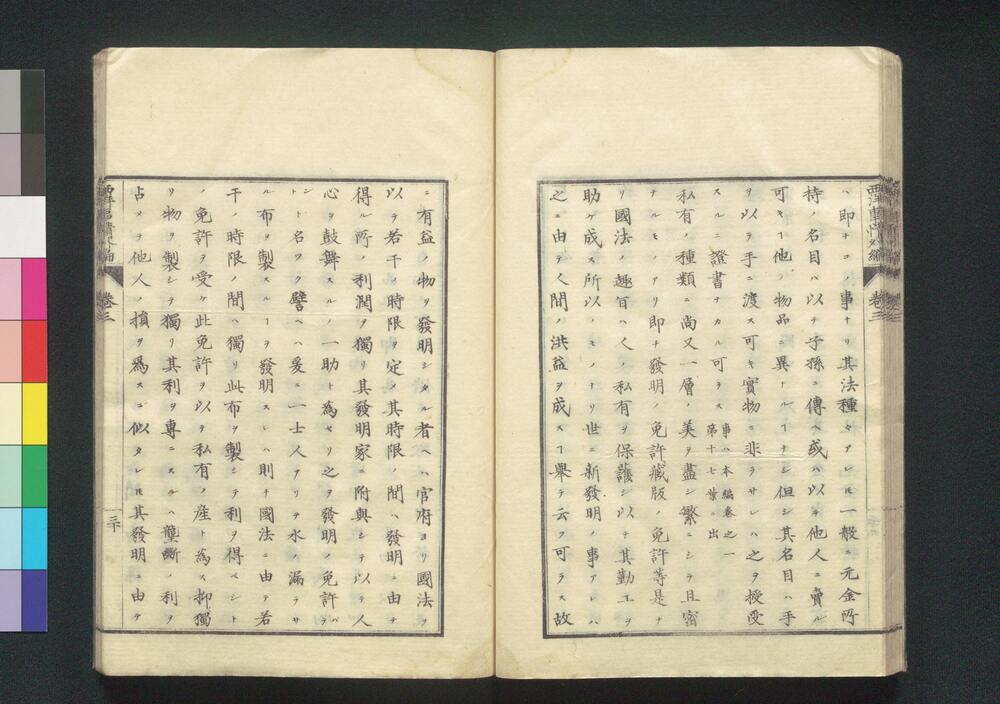 西洋事情外編
卷三
ハ即チコノ事ナリ其法種々アレヒ一般ニ元金所
持ノ名目ハ以テ子孫ニ傳ヘ或ハ以テ他人ニ賣ル
可キヿ他ノ物品ニ異ナルヿナシ但シ其名目ハ手
ヲ以テ手ニ渡ス可キ實物ニ非ラサレハ之ヲ授受
スルニ證書ナカル可ラス事ハ本編卷之一
第十七葉ニ出
私有ノ種類ニ尚又一層ノ美ヲ盡シ繁ニシテ且密
ナルモノアリ即チ發明ノ免許藏版ノ免許等是ナ
リ國法ノ趣旨ハ人ノ私有ヲ保護シ以テ其勤工ヲ
助ケ成ス所以ノモノナリ世ニ新發明ノ事アレハ
之ニ由テ人間ノ洪益ヲ成スヿ舉テ云フ可ラス故
ニ有益ノ物ヲ發明シタル者ヘハ官府ヨリ國法ヲ
以テ若干ノ時限ヲ定メ其時限ノ間ハ發明ニ由テ
得ル所ノ利潤ヲ獨リ其發明家ニ附與シテ以テ人
心ヲ鼓舞スルノ一助ト為セリ之ヲ發明ノ免許パテント
ト名ツク譬ヘハ爰ニ一士人アリテ水ノ漏ラサ
ル布ヲ製スルヿヲ發明スレハ則チ國法ニ由テ若
干ノ時限ノ間ハ獨リ此布ヲ製シテ利ヲ得ベシト
ノ免許ヲ受ケ此免許ヲ以テ私有ノ産ト為ス抑獨
リ物ヲ製シテ獨リ其利ヲ專ニスルハ壟斷ノ利ヲ
占メテ他人ノ損ヲ為スニ似タレヒ其發明ニ由テ
卷三
三十